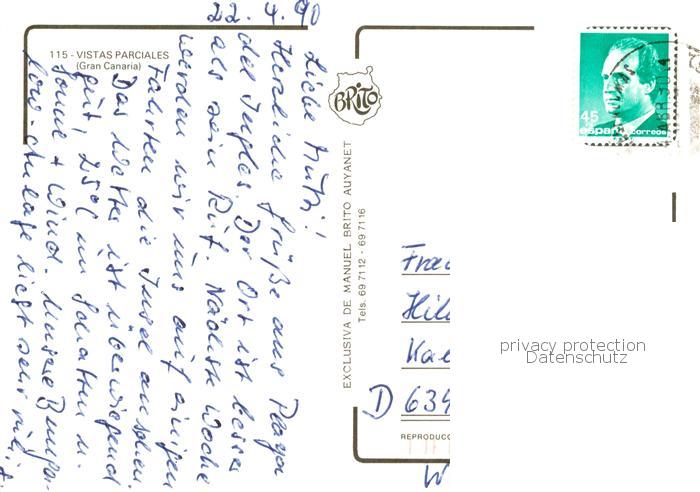 22.4.90
Liebe Mutti!
Herzliche Grüße aus Playa
del Ingles. Der Ort ist besser
als sein Ruf. Nächste Woche
werden wir uns auf einigen
Fahrten die Insel ansehen.
Das Wetter ist überwiegend
gut 25°C im Schatten u.
Sonne + Wind. Unsere Bunga-
low-Anlage liegt sehr ruhig
115 - VISTAS PARCIALES
(Gran Canaria)
BRITO
EXCLUSIVA DE MANUEL BRITO AUYANET
Tels. 69 7112 - 69 7116
45
españa correos
Frau
Hil
Kae
D 639
REPRODUC
W
privacy protection
Datenschutz